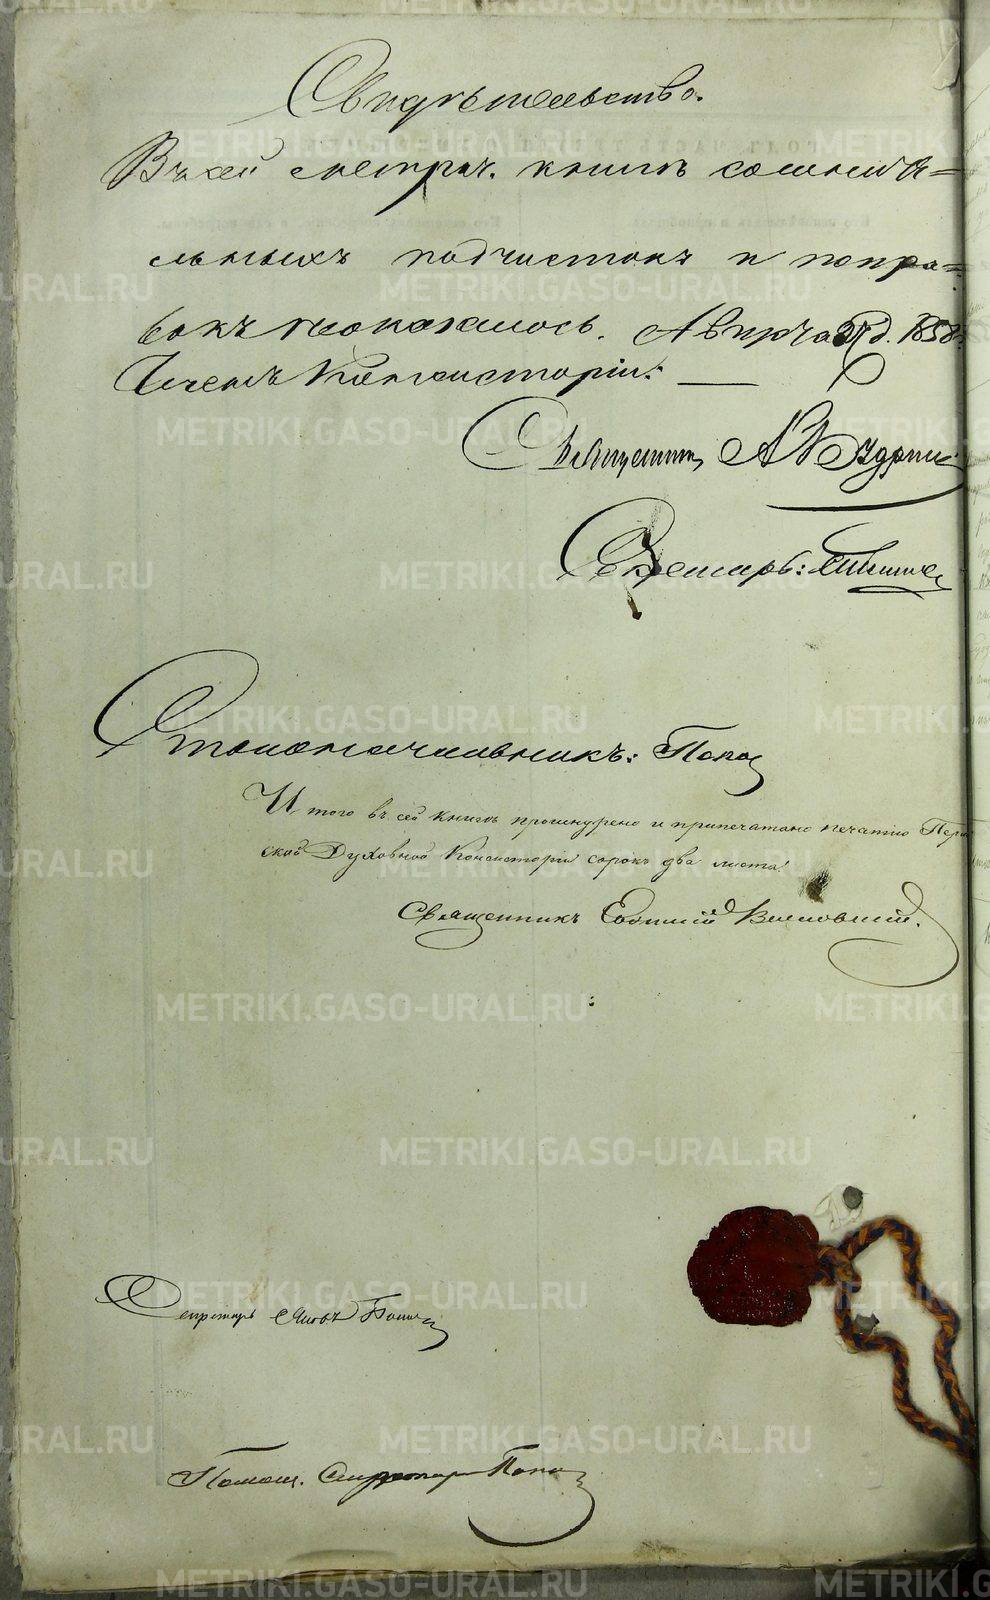 Свидѣтельство.
Въ сей метрич. книгѣ сомните=
льныхъ подчистокъ и попра=
вокъ неоказалось. д. 1858
Членъ Консисторіи:
Священникъ А.
Секретарь:
Столоначальникъ: Попов
Итого въ сей книгѣ прошнурено и припечатано печатію Перм
ской Духовной Консисторіи сорокъ два листа.
Священникъ Евфимій
Секретарь
Помощ. Секретаря Попов
METRIKI.GASO-URAL.RU